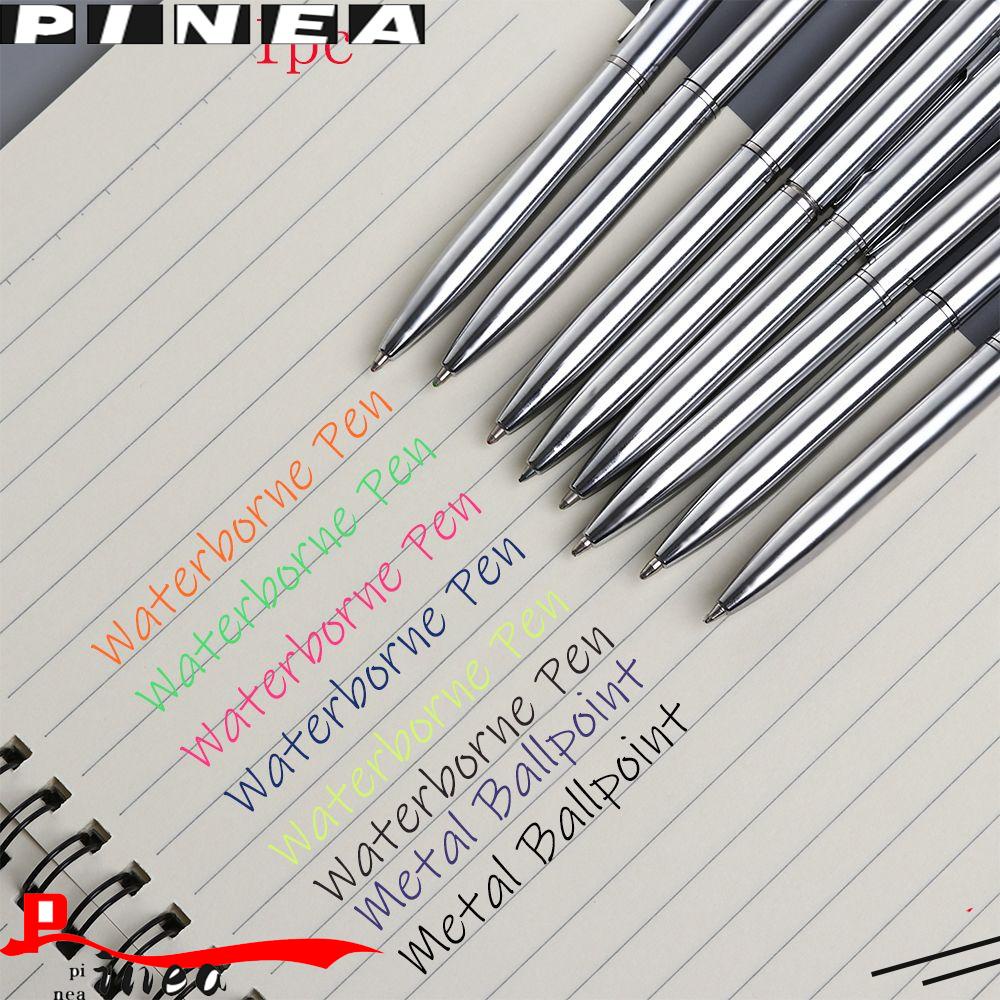 PINEA
1pc
Waterborne Pen
Waterborne Pen
Waterborne Pen
Waterborne Pen
Waterborne Pen
Waterborne Pen
Metal Ballpoint
Metal Ballpoint
P
pi
nea
inea